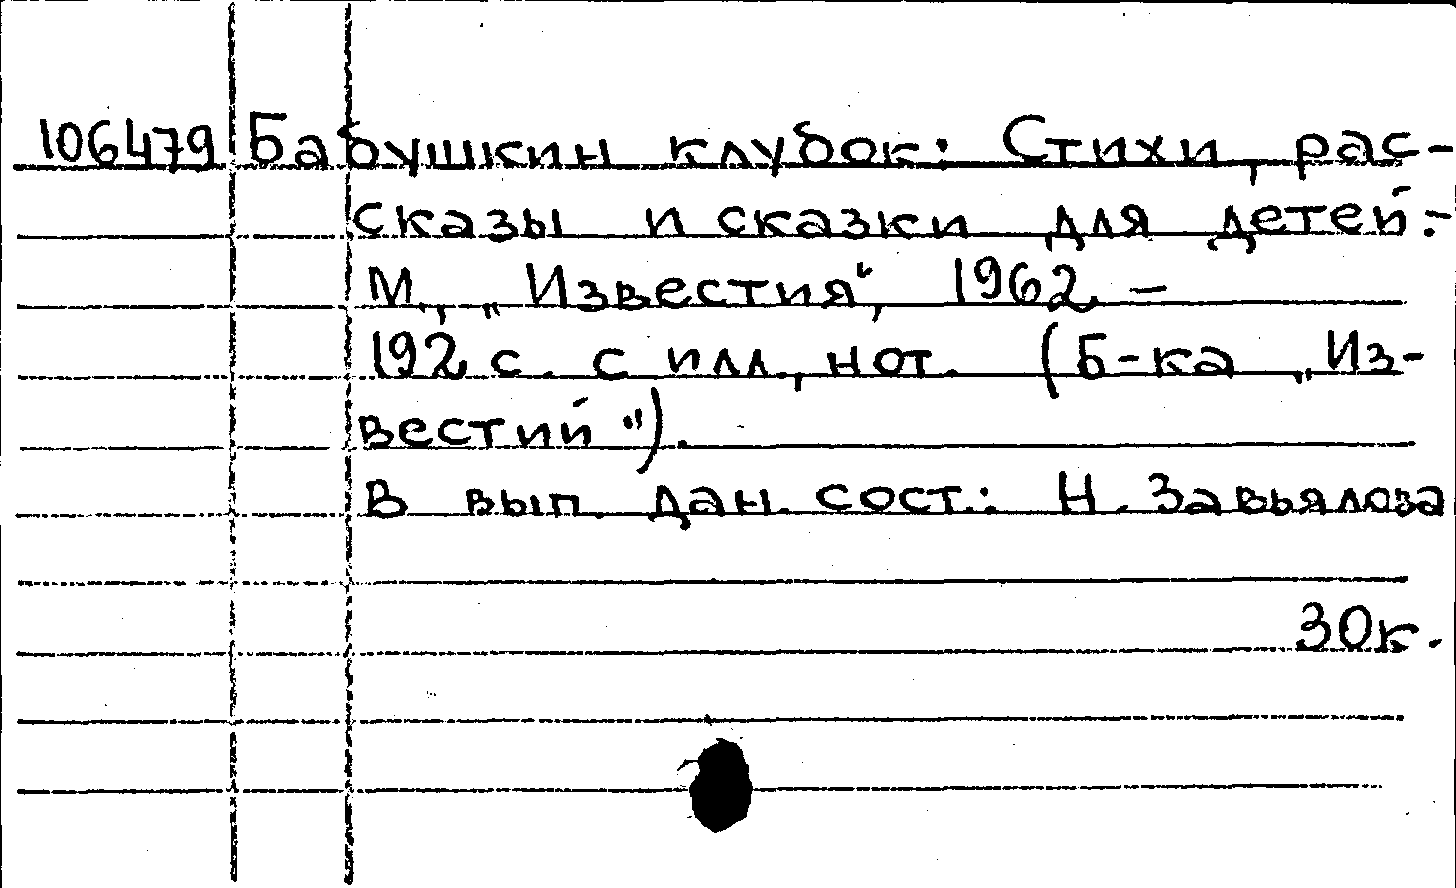 106479 Бабушкин клубок: Стихи, рас-
сказы и сказки для детей.-
М., „Известия", 1962. –
192 с. с илл., нот. (Б-ка „Из-
вестий").
В вып. дан. сост.: Н. Завьялова
30к.